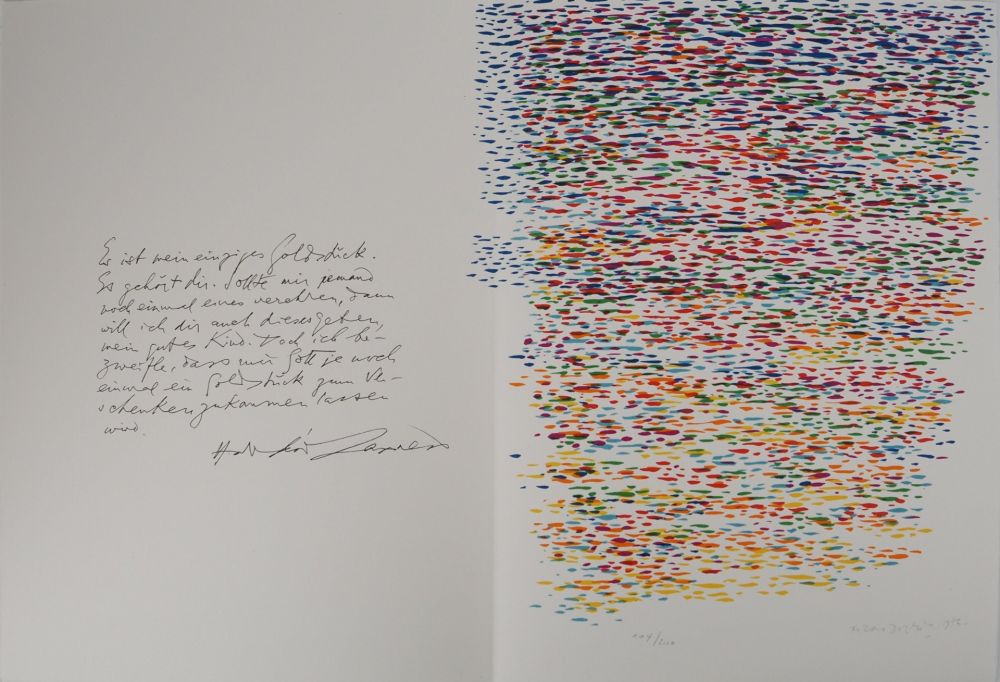 Es ist mein einziges Goldstück.
Es gehört dir. Sollte mir jemand
noch einmal eines verehren, dann
will ich dir auch dieses geben,
mein gutes Kind. Doch ich be-
zweifle, dass mir Gott je noch
einmal ein Goldstück zum Ver-
schenken zukommen lassen
wird.
104/200